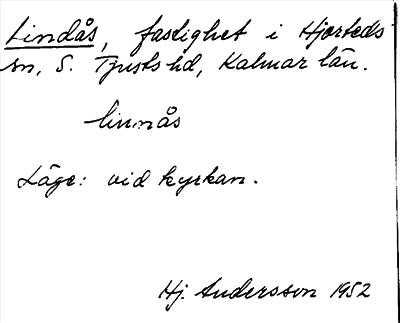 Lindås, fastighet i Hjorteds
sn, S. Tjusts hd, Kalmar län.
linnås
Läge: vid kyrkan.
Hj. Andersson 1952